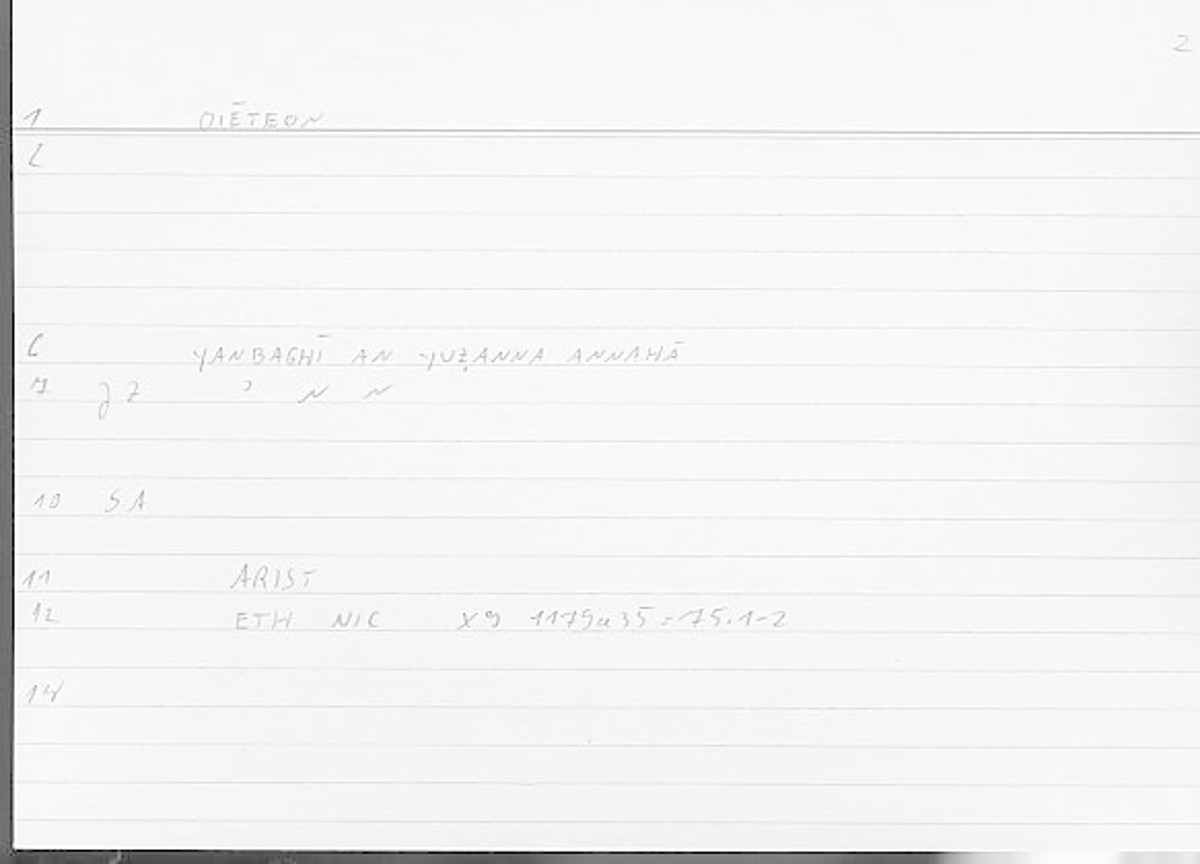 2
1 OIĒTEON
2
6 YANBAGHĪ AN YUẒANNA ANNAHĀ
7 J Z ʾ N N
10 SA
11 ARIST
12 ETH NIC X9 1179a35 = 75.1-2
14